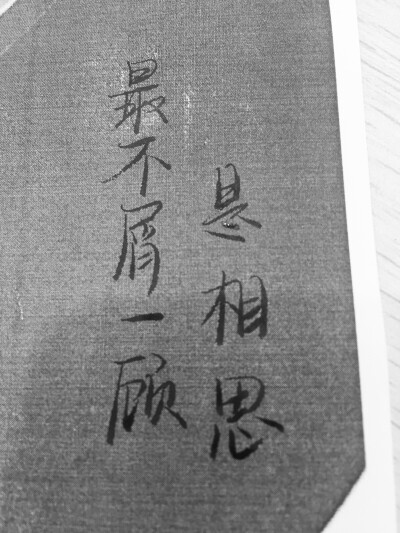 最不屑一顾
是相思